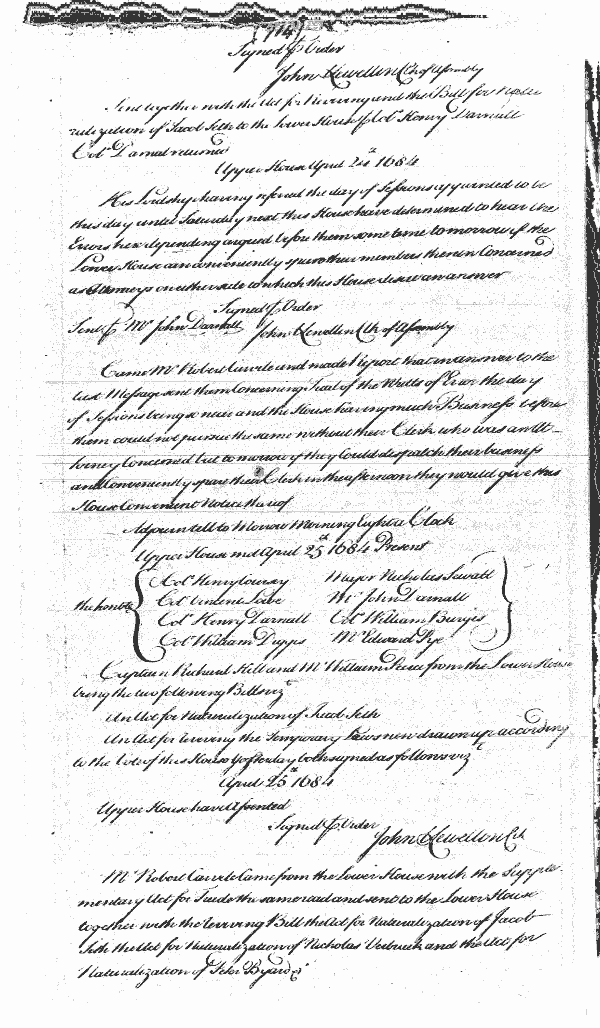 (714)
Signed ꝑ Order
John Llewellen Clk of Assembly
Sent together with the Act for Reviving and this Bill for Natu
ralization of Jacob Seth to the Lower House ꝑ Colo Henry Darnall
Colo Darnal returned
Upper House April 24th 1684
His Lordship having referred the day of Sessions appointed to be
this day until Saturday next this House have determined to hear the
Errors here depending argued before them some time to morrow if the
Lower House can conveniently spare their members therein Concerned
as Attorneys on either side to which this House desire an answer
Signed ꝑ Order
Sent ꝑ Mr John Darnall John Llewellen Clk of Assembly
Came Mr Robert Carvile and made report that in answer to the
last Message sent them Concerning Trial of the Writts of Error the day
of Sessions being so near and the House having much Business before
them could not pursue the same without their Clerk who was an At-
torney Concerned but to morrow if they Could despatch their business
and Conveniently spare their Clerk in the afternoon they would give this
House Convenient Notice thereof
Adjourn'd till to Morrow Morning Eight a Clock
Upper House met April 25th 1684 Present
the honble
Colo Henry Lowsey Major Nicholas Sewall
Colo Vincent Lowe Mr John Darnall
Colo Henry Darnall Colo William Burges
Colo William Digges Mr Edward Pye
Captain Richard Hill and Mr William Peirce from the Lower House
bring the two following Bills vizt
An Act for Naturalization of Jacob Seth
An Act for reviving the Temporary Laws new drawn up according
to the Vote of this House Yesterday both signed as follows vizt
April 25th 1684
Upper House have Assented
Signed ꝑ Order
John Llewellen Clk
Mr Robert Carvile Came from the Lower House with the Supple-
mentary Act for Trade the same read and sent to the Lower House
together with the reviving Bill the Act for Naturalization of Jacob
Seth the Act for Naturalization of Nicholas Verbrack and the Act for
Naturalization of Peter Byard &c